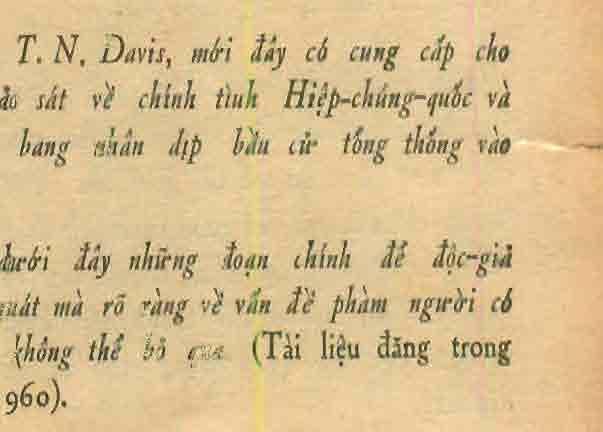 T. N. Davis, mới đây có cung cấp cho
sát về chính tình Hiệp-chúng-quốc và
bang nhân dịp bầu cử tổng thống vào
dưới đây những đoạn chính để độc-giả
quát mà rõ ràng về vấn đề phàm người có
không thể bỏ qua (Tài liệu đăng trong
960).